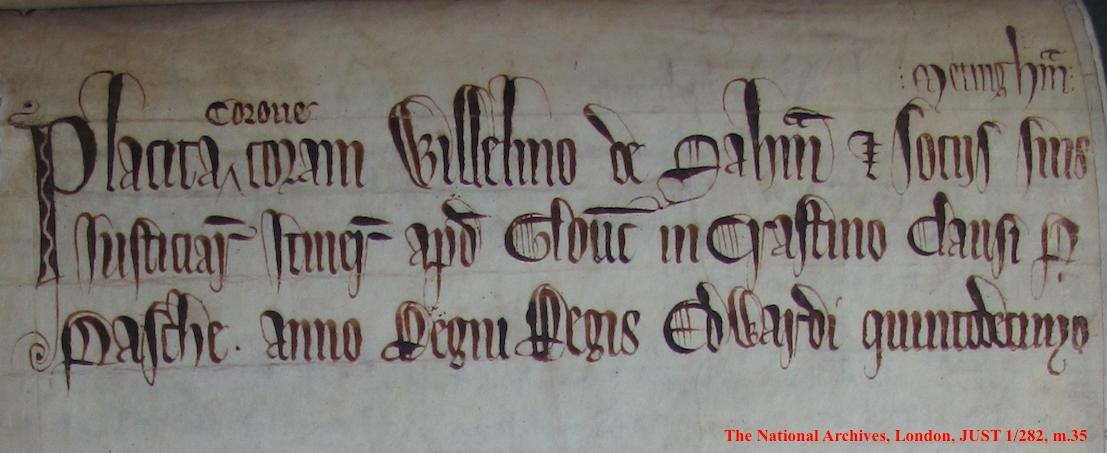 : Meyngh̄m :
Corone
Placita ‸ coram Willelmo de Sah̄m ⁊ Socijs suis
Justiciar̄ Itin̄er̄ apd̄ Glouc̄ in Crastino Clausi P
Pasche. anno Regni Regis Edwardi quintodecimo
The National Archives, London, JUST 1/282, m.35